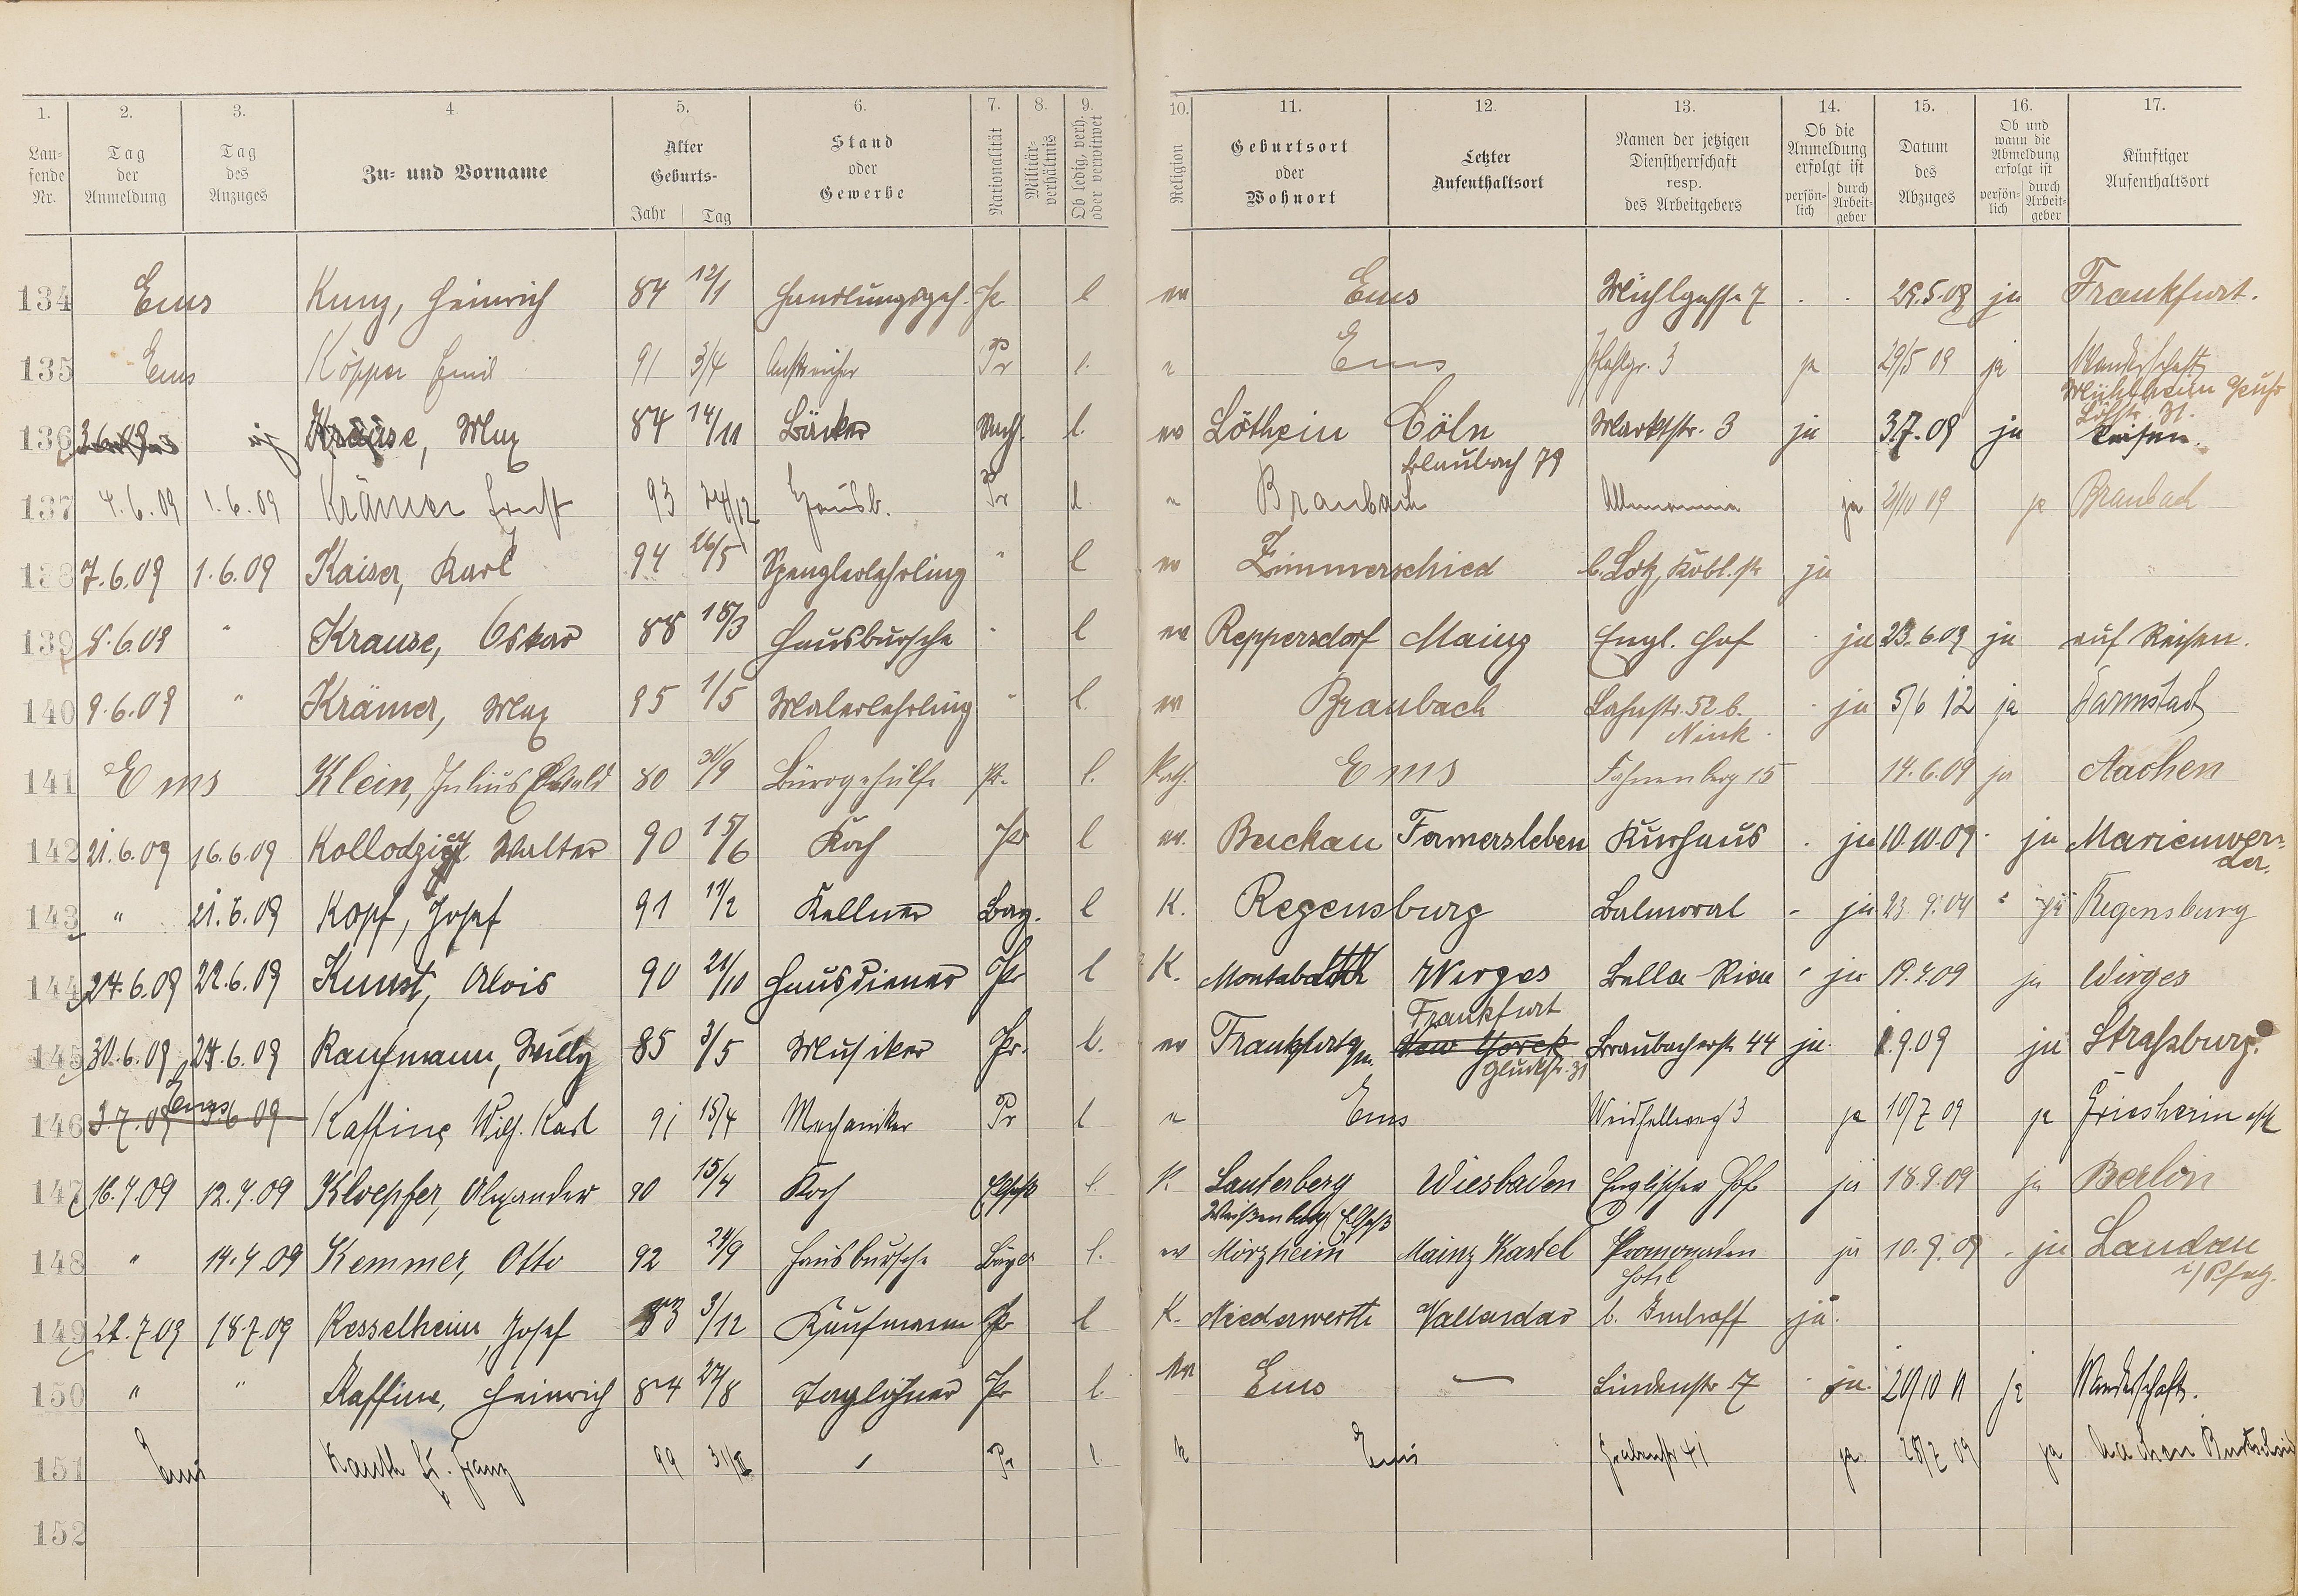 1. 2. 3. 4 5. 6. 7. 8. 9. 10. 11. 12. 13. 14. 15. 16. 17.
Lau-
fende
Nr.
Tag
der
Anmeldung
Tag
des
Anzuges
Zu- und Vorname
Alter
Geburts-
Jahr Tag
Stand
oder
Gewerbe
Nationalität
Militär-
verhältnis
Ob ledig, verh.
oder verwitwet
Religion
Geburtsort
oder
Wohnort
Letzter
Aufenthaltsort
Namen der jetzigen
Dienstherrschaft
resp.
des Arbeitgebers
Ob die
Anmeldung
erfolgt ist
persön-
lich
durch
Arbeit-
geber
Datum
des
Abzuges
Ob und
wann die
Abmeldung
erfolgt ist
persön-
lich
durch
Arbeit-
geber
Künftiger
Aufenthaltsort
134 Ems Kunz, Heinrich 84 12/1 Handlungsgeh. Pr l ev Ems Mühlgasse 7 29.5.09 ja Frankfurt.
135 Ems Köpper Emil 91 3/4 Anstreicher Pr l. e Ems Pfahlgr. 3 ja 29/5 09 ja Wanderschaft
Mühlheim Ruhr
136 Krause, Max 84 14/11 Bäcker l. ev Löthein Cöln Marktstr. 3 ja 3.7.09 ja Reisen.
Blaubach 79
137 4.6.09 1.6.09 Krämer Ernst 93 24/12 Hausb. Pr l. e Braubach Alemannia ja 2/10 09 ja Braubach
138 7.6.09 1.6.09 Kaiser, Karl 94 26/5 Spenglerlehrling " l ev Zimmerschied b. Lotz, Kobl. str ja
139 8.6.09 " Krause, Oskar 88 18/3 Hausbursche " l ev Reppersdorf Mainz Engl. Hof ja 23.6.09 ja auf Reisen.
140 9.6.09 " Krämer, Max 95 1/5 Malerlehrling " l. ev Braubach Lahnstr. 52 b. ja 5/6 12 ja Darmstadt
Nink.
141 Ems Klein, Julius Ewald 80 30/9 Bürogehülfe Pr. l. Kath. Ems Fahnenberg 15 14.6.09 ja Aachen
142 21.6.09 16.6.09 Walter 90 15/6 Koch Pr l ev. Buckau Fermersleben Kurhaus ja 10.10.09 ja Marienwer-
der.
143 " 21.6.09 Kopf, Josef 91 11/2 Kellner Bay. l K. Regensburg Balmoral - ja 23.9.09 " ja Regensburg
144 24.6.09 22.6.09 Kunst, Alois 90 21/10 Hausdiener Pr l K. Wirges Bella Riva ja 19.7.09 ja Wirges
Frankfurt
145 30.6.09 24.6.09 Kaufmann, Willy 85 3/5 Musiker Pr. l. ev Frankfurt New Yorck Braubacherstr 44 ja 1.9.09 ja Straßburg.
Gluckstr. 31
Ems
146 3.7.09 Kaffine Wilh. Karl 91 15/4 Mechaniker Pr l e Ems Weidhellweg 3 ja 10/7 09 ja Griesheim a/M
147 16.7.09 12.7.09 Kloepfer, Alexander 90 15/4 Koch Elsaß l. K Lauterberg Wiesbaden Englischer Hof ja 18.9.09 ja Berlin
Weißenburg Elsaß
148 " 14.7.09 Kemmer, Otto 92 24/9 Hausbursche Bayer l. ev Mörzheim Mainz Kastel Promenaden ja 10.9.09 ja Landau
Hotel i/Pfalz.
149 22.7.09 18.7.09 Kesselheim, Josef 83 3/12 Kaufmann Pr l K. Niederwerth Vallendar b. Imhoff ja.
150 " " Kaffine, Heinrich 84 27/8 Taglöhner Pr l. ev Ems — Lindenstr. 7 ja. 20/10 11 ja Wanderschaft.
151 Ems Kauth Franz 99 Pr l k Ems Grabenstr 41 ja 28/7 09 ja Aachen Burtscheid
152